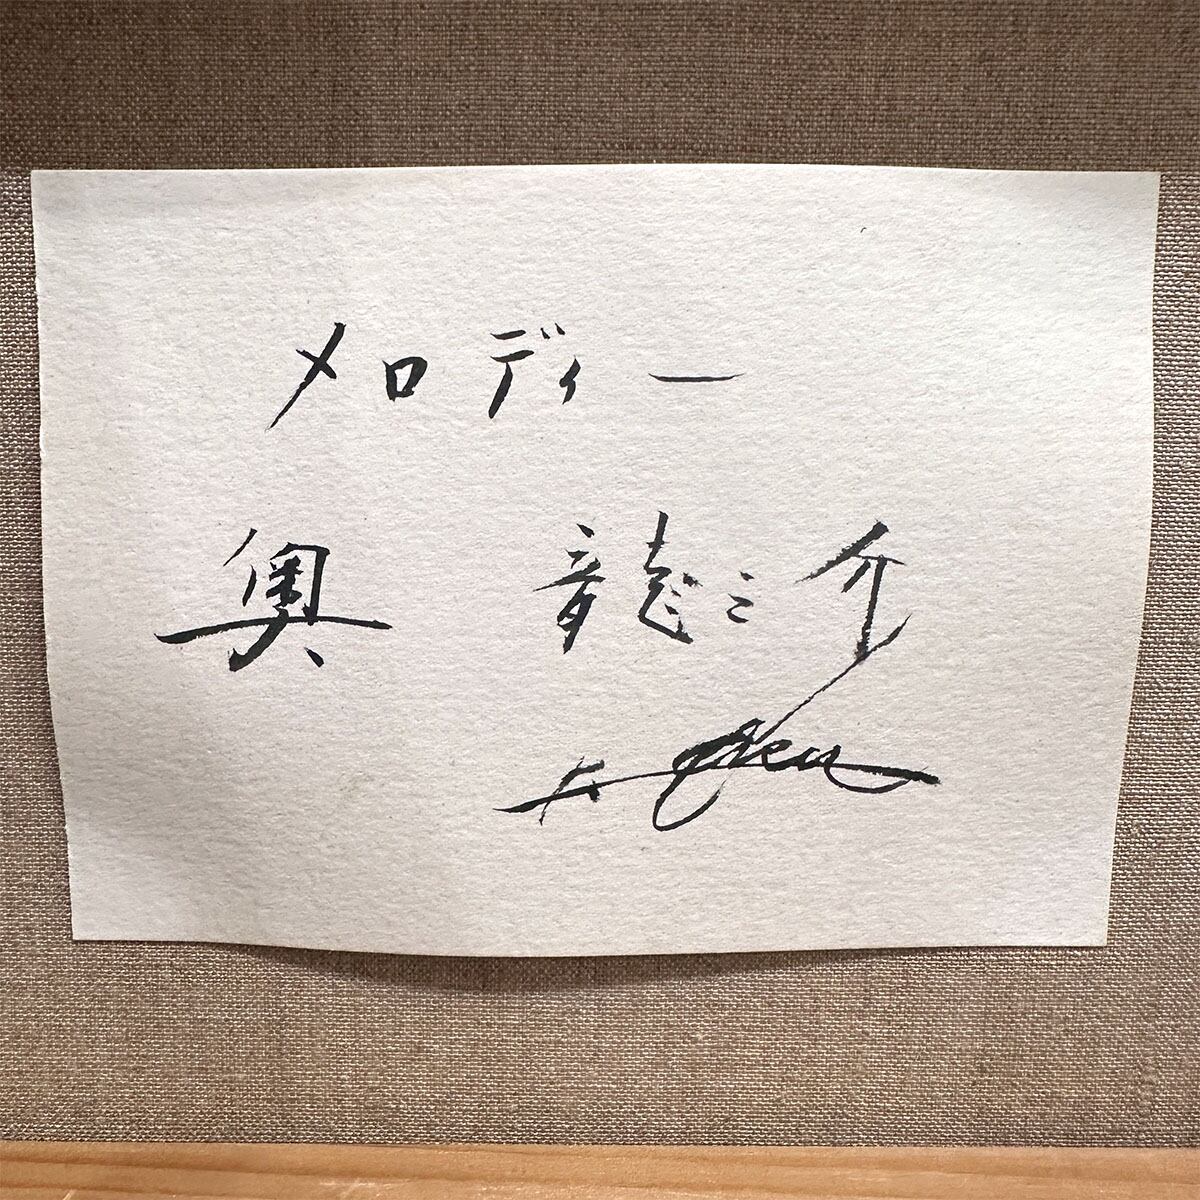 メロディー
奥 龍二介